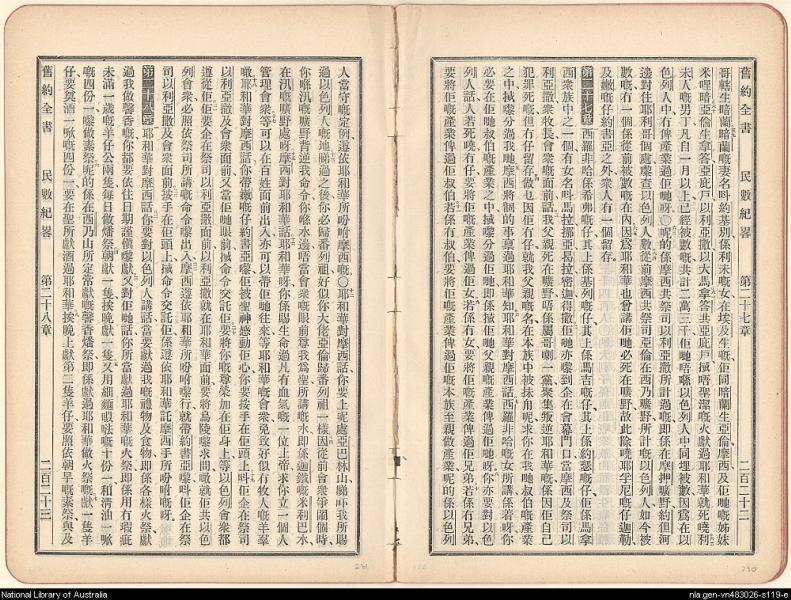 舊約全書 民數紀畧 第二十七章 二百二十二
哥轄生暗蘭暗蘭嘅妻名呌約基別係利未嘅女在埃及生嘅佢同暗蘭生亞倫摩西及佢哋嘅姊妹
米哩暗亞倫生拿答亞庇戶以利亞撒以大馬拿答共亞庇戶㨢唔聖潔嘅火獻過耶和華就死嘵利
未人嘅男丁凡自一月以上已經被數嘅共計二萬三千佢哋唔喺以色列人中同埋被數因爲在以
色列人中冇俾產業過佢哋呀○呢的係摩西共祭司以利亞撒所計過嘅即係在摩押曠野約但河
邊對住耶利哥個處嚟查以色列人數從前摩西共祭司亞倫在西乃曠野所計嘅以色列人如今被
數嘅冇一個係從前被數嘅在內因爲耶和華也曾講佢哋必死在曠野故此除嘵耶孚尼嘅仔迦勒
及嫩嘅仔約書亞之外衆人冇一個留存
第二十七章 西羅非哈係希弗嘅仔其上係基列嘅仔其上係馬吉嘅仔其上係約瑟嘅仔佢係馬拿
西衆族中之一個有女名呌馬拉挪亞曷拉密迦得撒佢哋亦嚟到企在會幕門口當摩西及祭司以
利亞撒衆牧長會衆嘅面前話我父親死在曠野唔係屬哥喇一黨聚集叛逆耶和華嘅係因佢自己
犯罪死嘅但冇仔留存做乜因佢冇仔就我父親嘅名在本族中被抹甪呢求你在我哋叔伯嘅產業
之中㨢嚟分過我哋摩西將個的事禀過耶和華知耶和華對摩西話西羅非哈嘅女所講係着呀你
必要在佢哋叔伯嘅產業之中㨢嚟分過佢哋即係㨢佢哋父親嘅產業俾過佢哋呀你亦要對以色
列人話人若死嘵冇仔要將佢嘅產業俾過佢女若係冇女要將佢嘅產業俾過佢兄弟若係冇兄弟
要將佢嘅產業俾過佢叔伯若係冇叔伯要將佢嘅產業俾過佢嘅本族至親做產業呢的係以色列
舊約全書 民數紀畧 第二十八章 二百二十三
人當守嘅定例遵依耶和華所吩咐摩西嘅○耶和華對摩西話你要上呢處亞巴林山睇吓我所賜
過以色列人嘅地睇過之後你必歸番列祖好似你大佬亞倫歸番列祖一樣因從前會衆爭鬭個時
你喺汛嘅曠野背逆我命令你喺水邊唔當會衆嘅眼前尊我爲聖所講嘅水即係迦鐵嘅米利巴水
在汛嘅曠野處呀摩西對耶和華話耶和華呀你係賜生命過凡有血氣嘅一位上帝求你立一個人
管理會衆等可以在百姓面前出入亦可以帶佢哋往來等耶和華嘅會衆免致好似冇牧人嘅羊羣
噉耶和華對摩西話你帶嫩嘅仔約書亞嚟佢被聖神感動佢心你要按手在佢頭上呌佢企在祭司
以利亞撒及會衆面前又當佢哋眼前㨢命令交託佢要將你嘅尊榮加在佢身上等以色列會衆都
遵從佢佢要企在祭司以利亞撒面前以利亞撒就在耶和華面前要將烏陵嚟求問噉就佢共以色
列會衆必照依祭司所講嘅命令嚟出入摩西遵依耶和華所吩咐嚟行就帶約書亞嚟呌佢企在祭
司以利亞撒及會衆面前按手在佢頭上㨢命令交託佢係遵依耶和華託摩西手所吩咐嘅呀
第二十八章 耶和華對摩西話你要對以色列人講話當要獻過我嘅禮物及食物即係各樣火祭獻
過我做馨香嘅你都要依住日期謹愼嚟獻又對佢哋話你所當獻過耶和華嘅火祭即係用冇瑕疵
未滿一歲嘅羊仔公兩隻每日做燔祭朝獻一隻挨晚獻一隻又用細麵嘅㕸嘅十份一和淸油一㗎
嘅四份一嚟做素祭呢的係在西乃山所定常獻嘅馨香燔祭即係獻過耶和華做火祭嘅獻一隻羊
仔要奠酒一㗎嘅四份一要在聖所獻酒過耶和華挨晚上獻第二隻羊仔要照依朝早嘅素祭與及
National Library of Australia
nla.gen-vn483026-s119-e